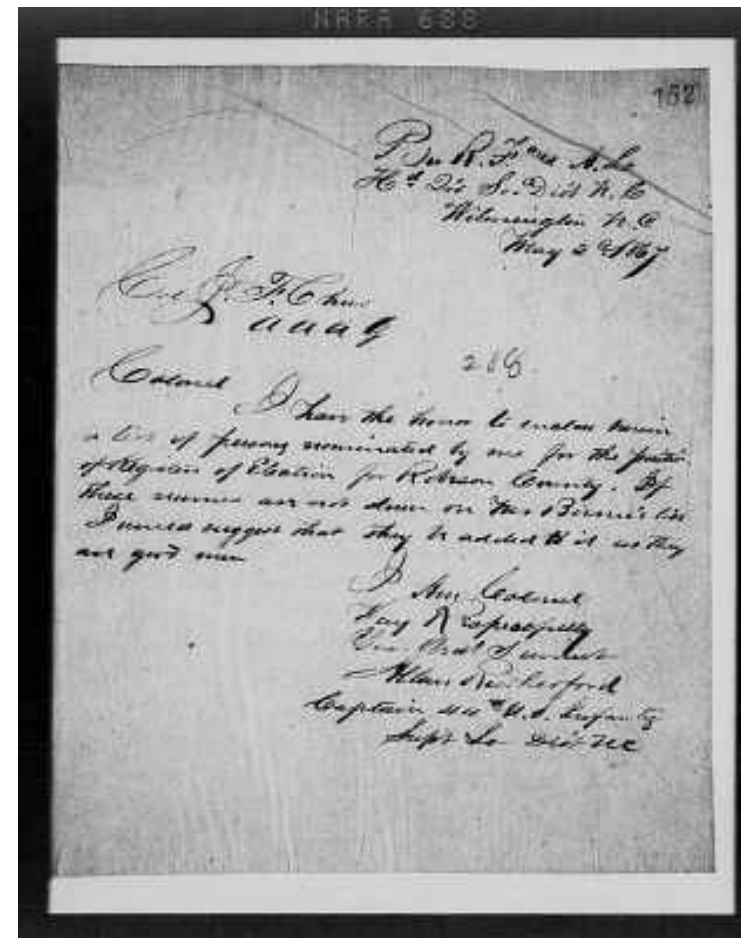 NARA 688
152
Bu R. F and A. L
Hd Qrs So. Dist N. C
Wilmington N. C
May 2 1867
Col J. F. Chur
A A A G
288
Colonel I have the honor to enclose herein
a list of persons nominated by me for the position
of Registers of Election for Robeson County. If
these names are not down on Mr Birnie's list
I would suggest that they be added to it as they
are good men
I Am Colonel
Very Respectfully
Your Obdt Servant
Allan Rutherford
Captain 44th U.S. Infantry
Supt So Dist NC